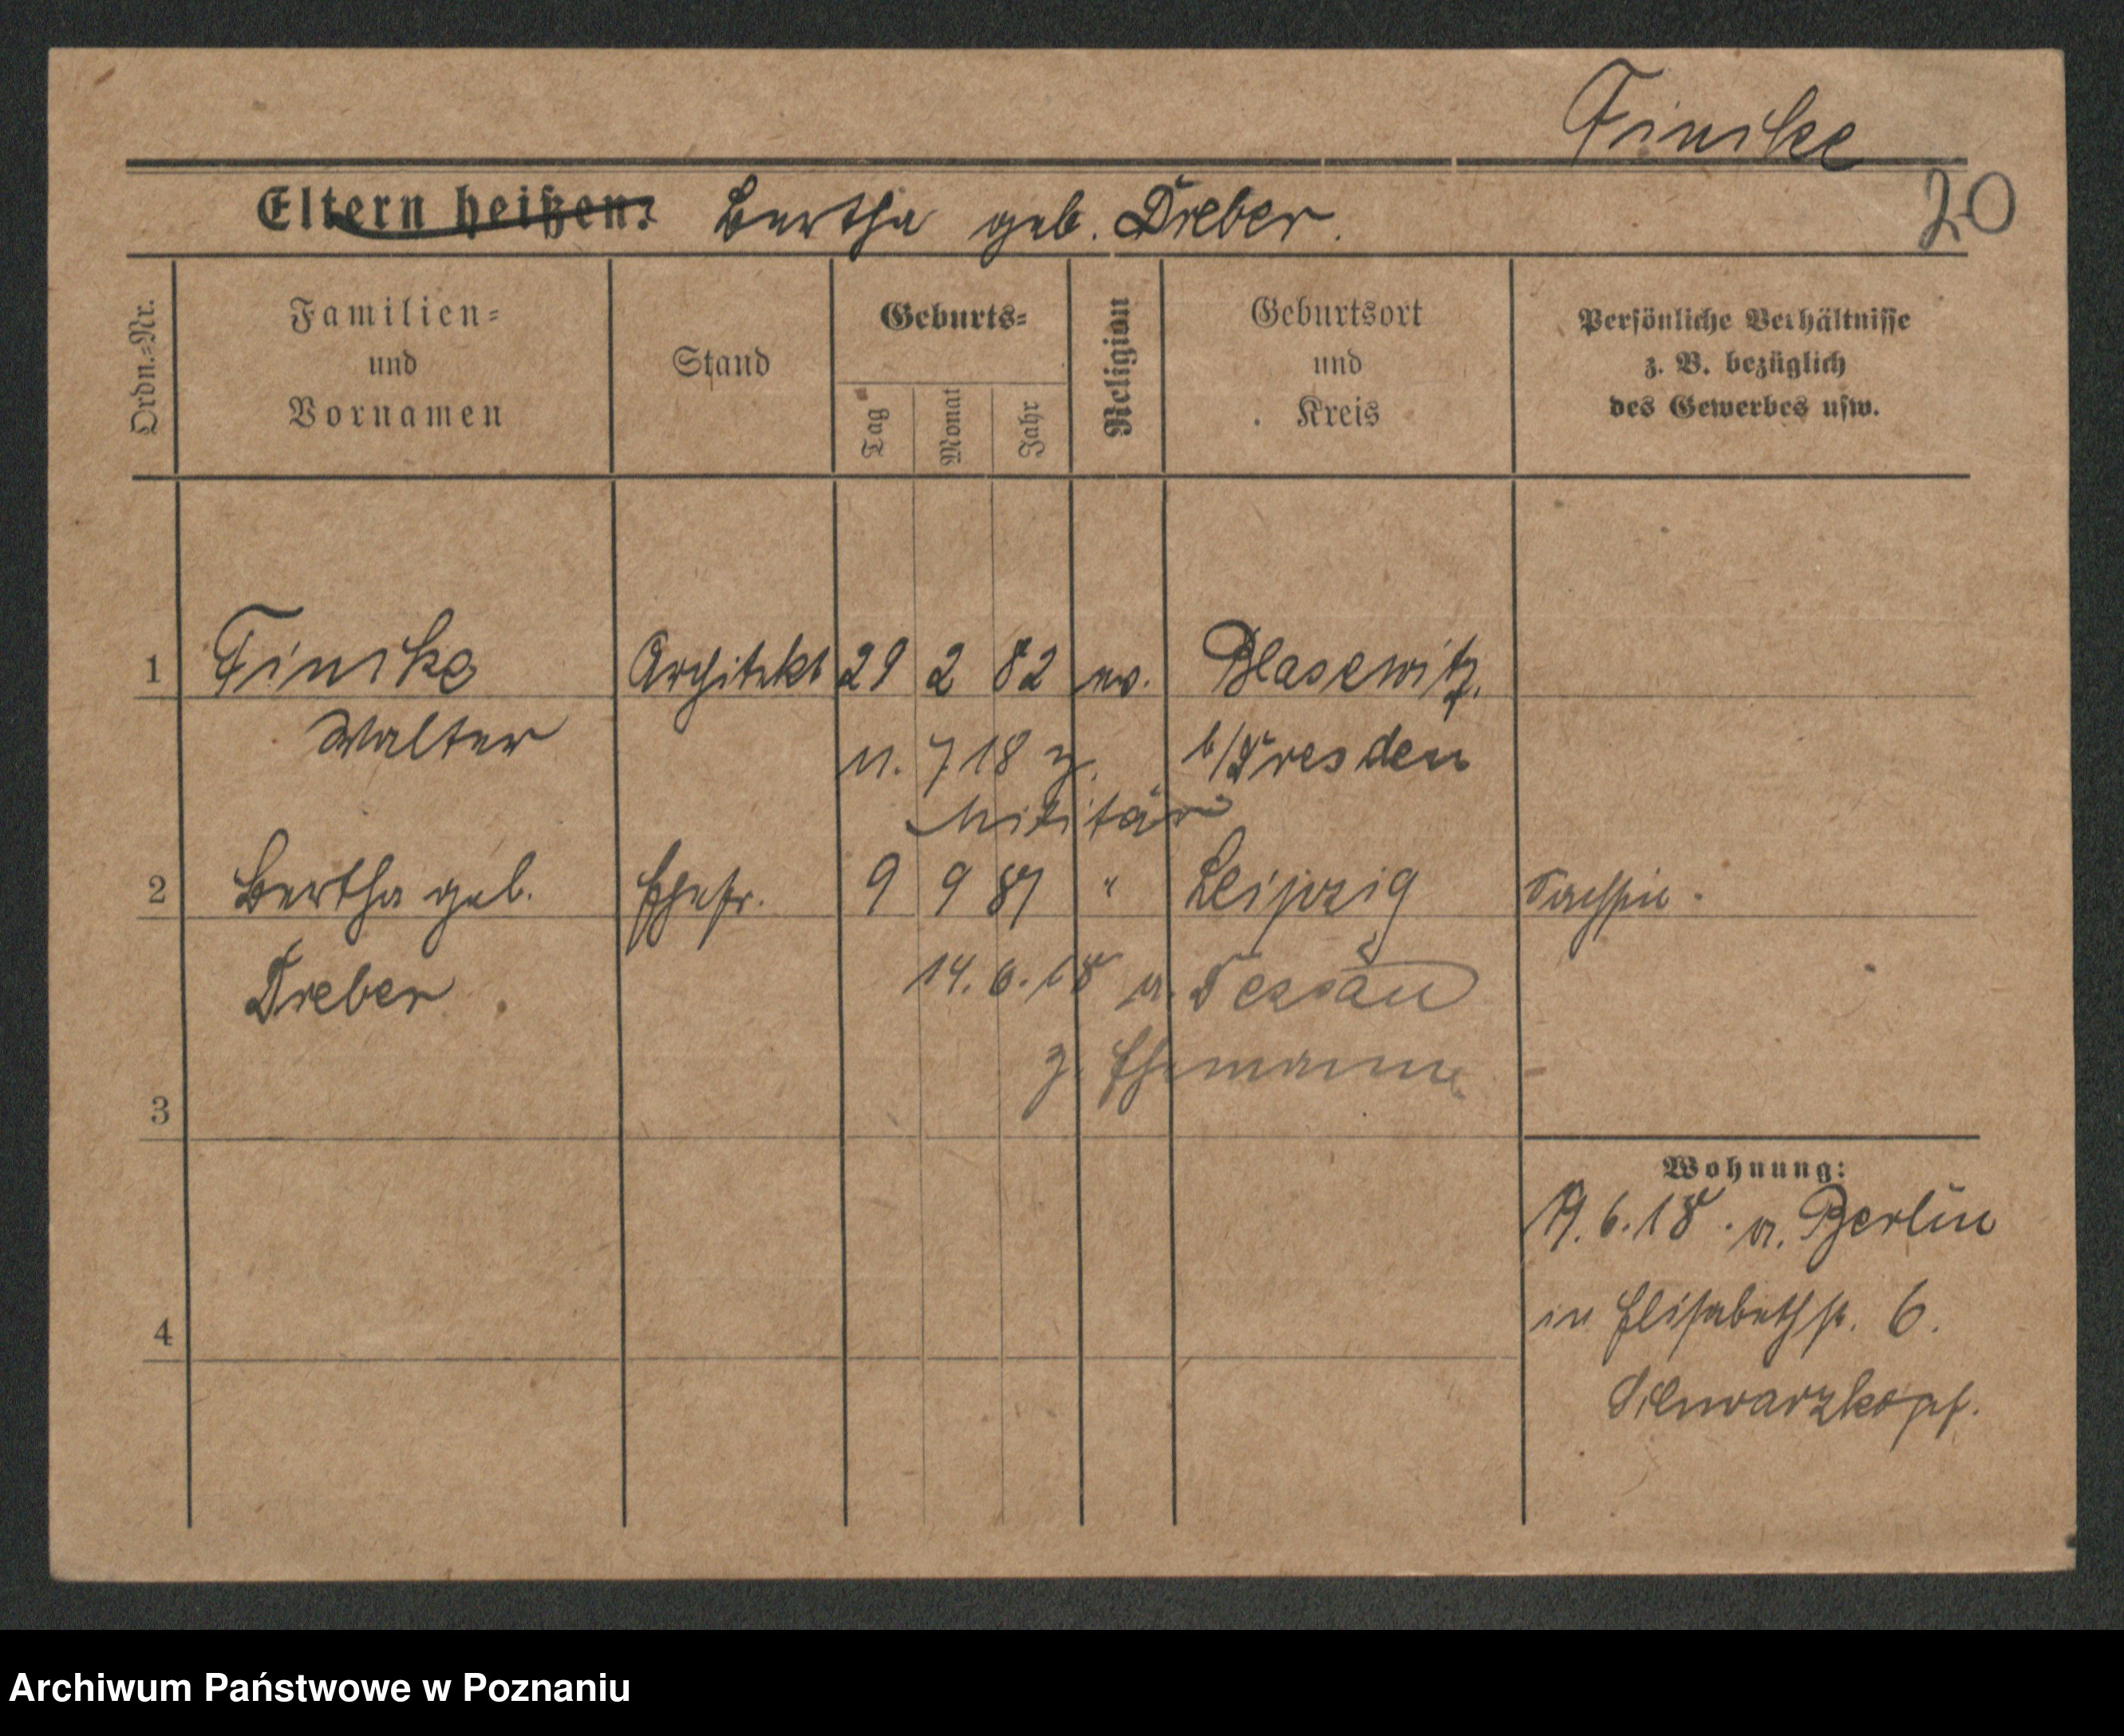 Finike
Eltern heißen: Bertha geb. Dreber.
20
Ordn.=Nr.
Familien=
und
Vornamen
Stand
Geburts=
Tag
Monat
Jahr
Religion
Geburtsort
und
Kreis
Persönliche Verhältnisse
z. B. bezüglich
des Gewerbes usw.
1 Finike Architekt 29 2 82 ev. Blasewitz
Walter n. 7 18 z. b/Dresden
Militär
2 Bertha geb. Ehefr. 9 9 87 " Leipzig
Dreber 14. 6. 18 n. Dessau
z. Ehemann
3
Wohnung:
6. 18. n. Berlin
in Elisabethstr. 6.
4
Schwarzkopf.
Archiwum Państwowe w Poznaniu